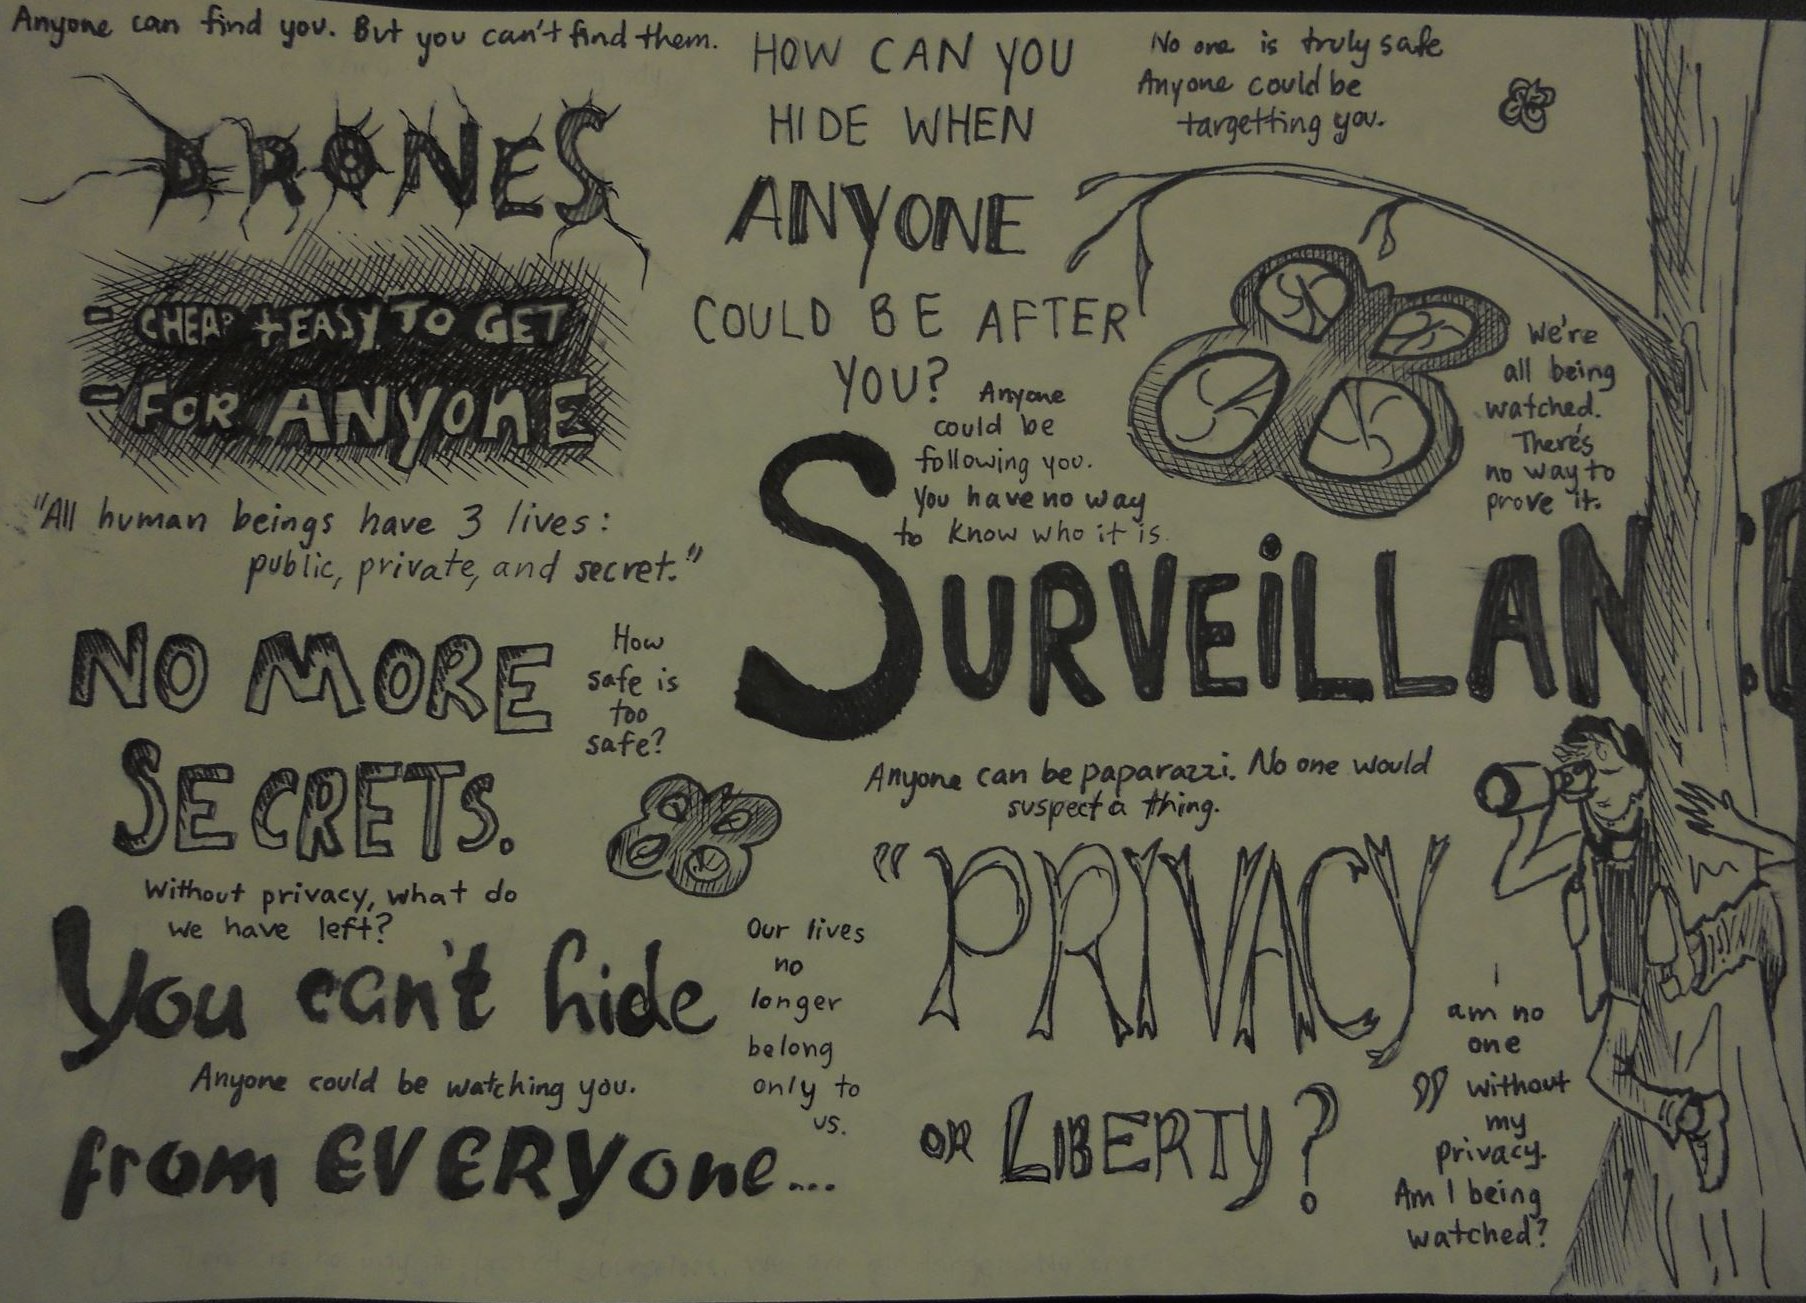 Anyone can find you. But you can't find them.
DRONES
- CHEAP + EASY TO GET
- FOR ANYONE
"All human beings have 3 lives:
public, private, and secret."
NO MORE
SECRETS.
How
safe is
too
safe?
Without privacy, what do
we have left?
You can't hide
Anyone could be watching you.
from EVERYone...
Our lives
no
longer
belong
only to
us.
HOW CAN YOU
HIDE WHEN
ANYONE
COULD BE AFTER
YOU?
Anyone
could be
following you.
You have no way
to know who it is.
No one is truly safe
Anyone could be
targetting you.
We're
all being
watched.
There's
no way to
prove it.
SURVEiLLAN
Anyone can be paparazzi. No one would
suspect a thing.
"PRIVACY
OR LIBERTY?"
I
am no
one
without
my
privacy.
Am I being
watched?